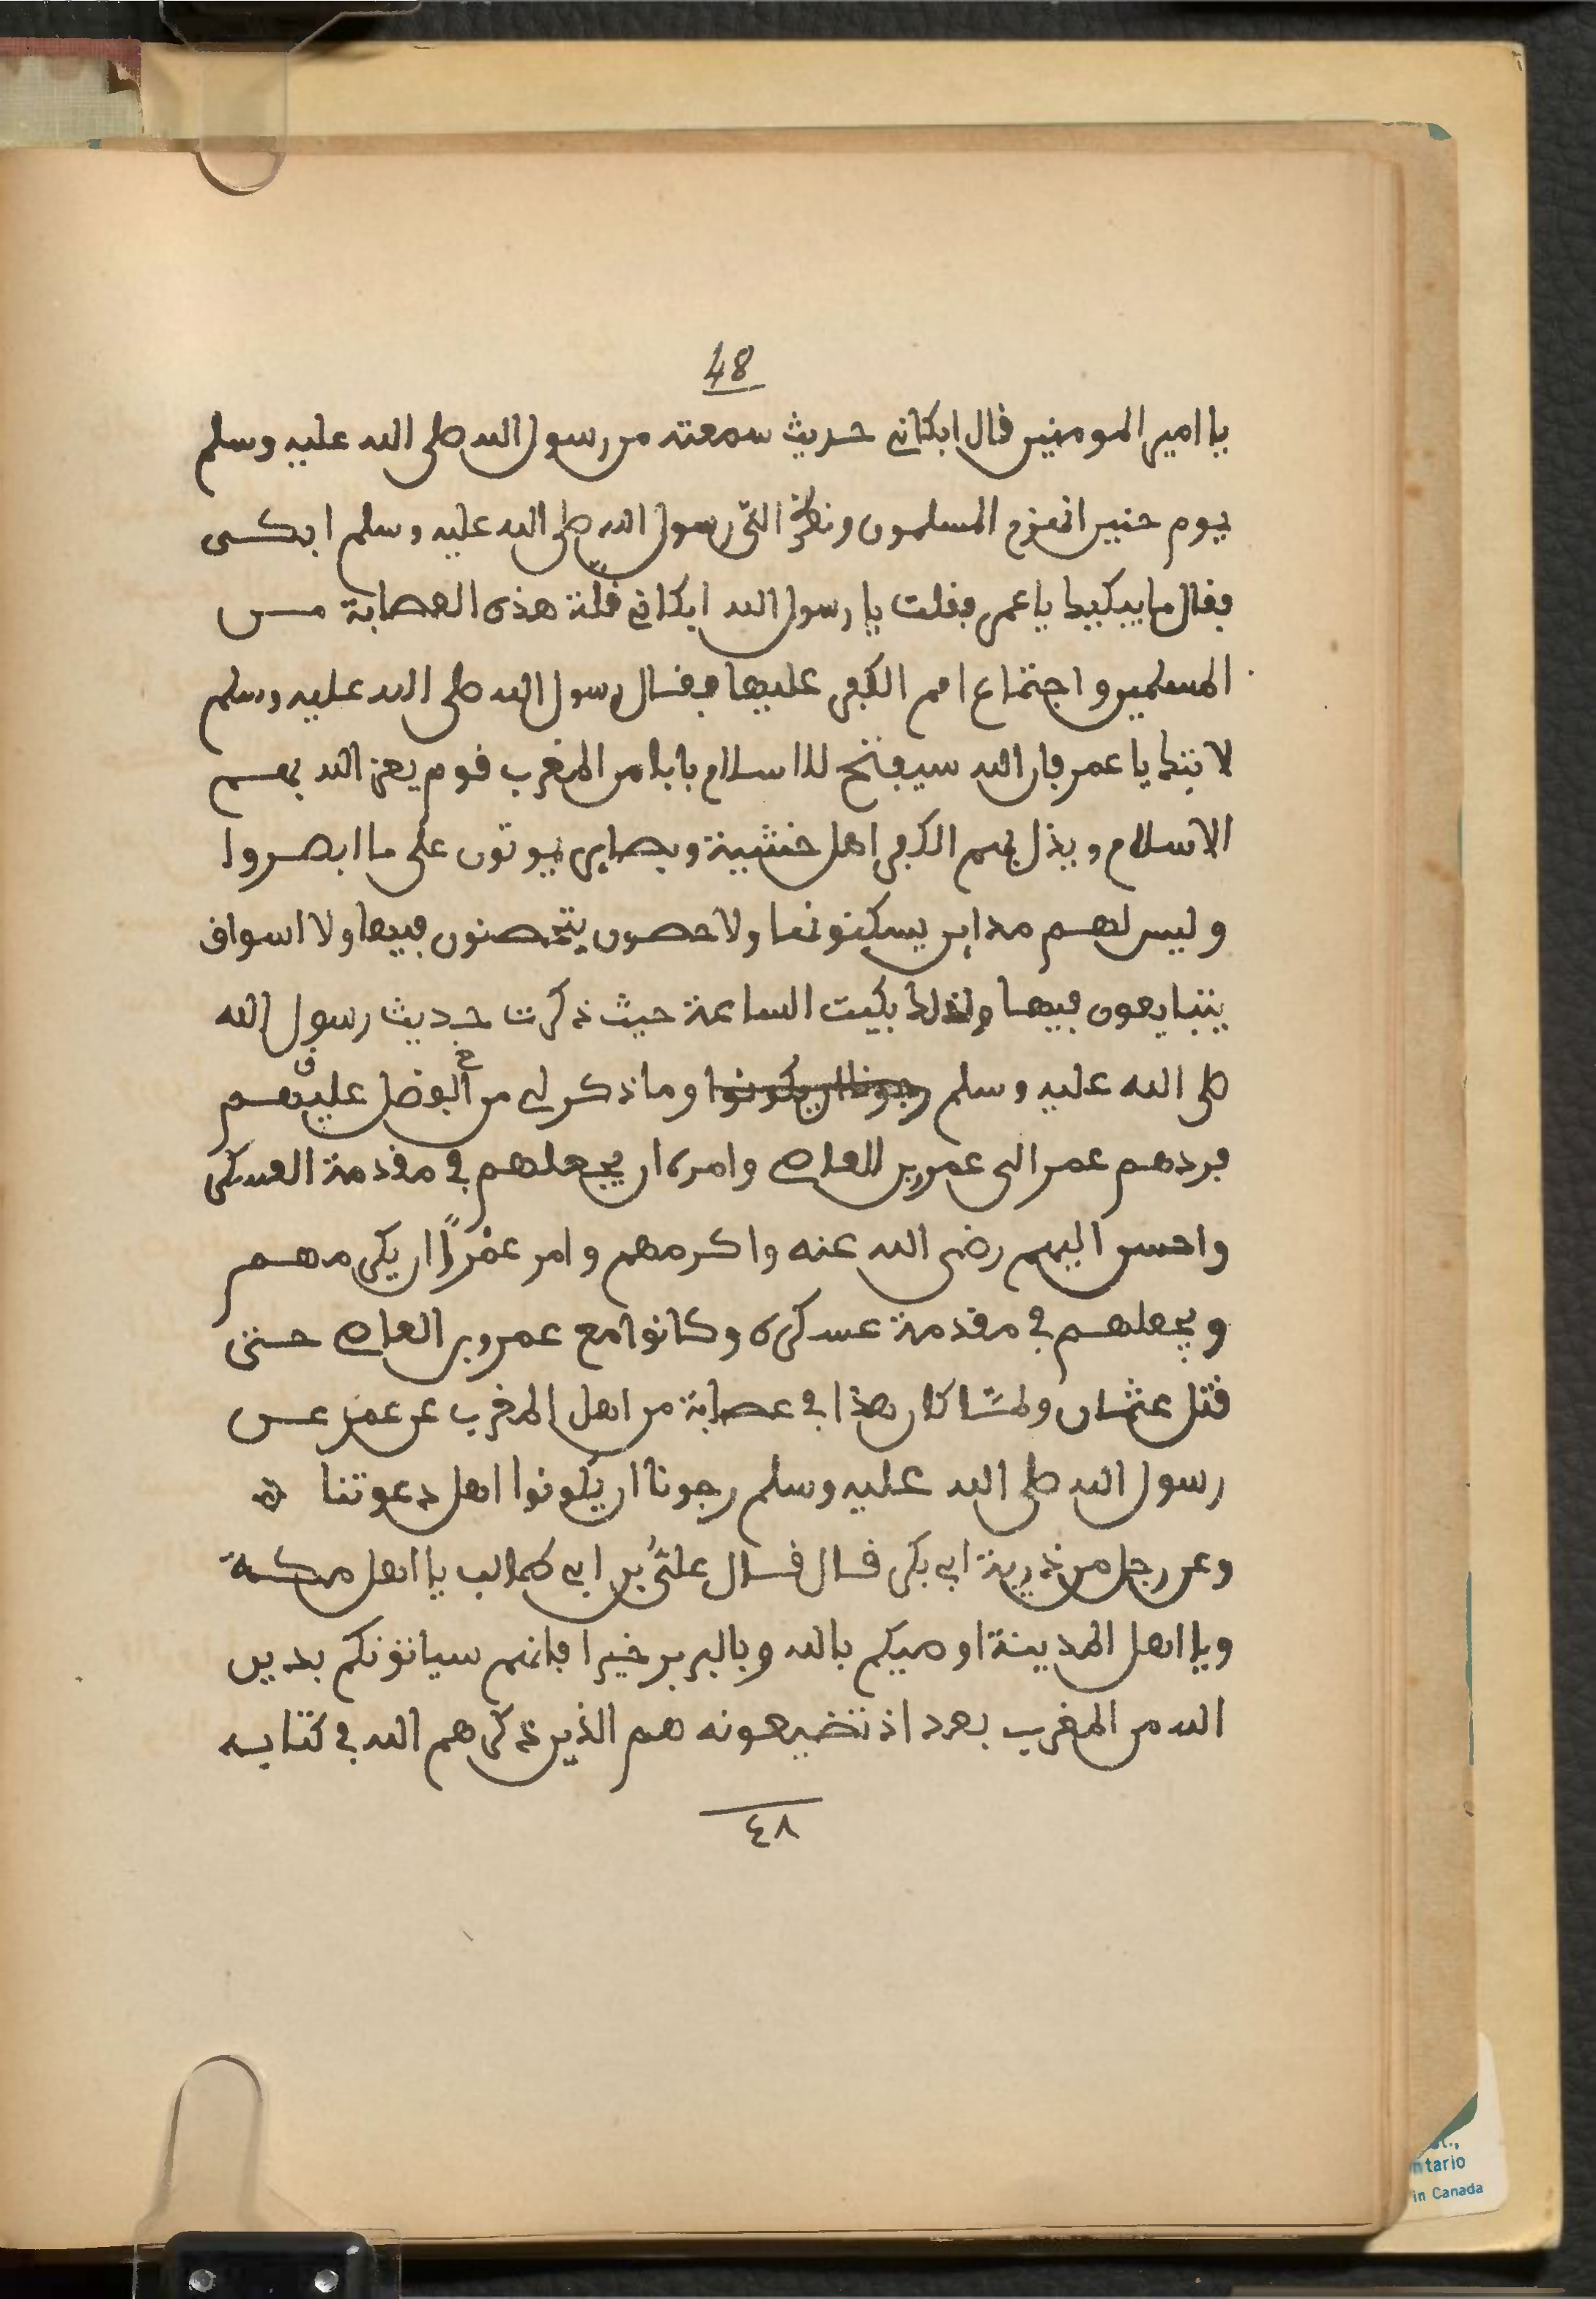 48
يا امير المومنين قال ابكاني حديث سمعته من رسول الله صلى الله عليه وسلم
يوم حنين انهزم المسلمون ونظر التي رسول الله صلى الله عليه وسلم ابكى
فقال ما يبكيك يا عمر فقلت يا رسول الله ابكاني قلة هذه العصابة من
المسلمين واجتماع امم الكفر عليها فقال رسول الله صلى الله عليه وسلم
لا تبك يا عمر فان الله سيفتح للاسلام بابا من المغرب قوم يعز الله بهم
الاسلام ويذل بهم الكفر اهل خشية وبصاير يموتون على ما ابصروا
وليس لهم مداين يسكنونها ولا حصون يتحصنون فيها ولا اسواق
يتبايعون فيها ولذلك بكيت الساعة حيث ذكرت حديث رسول الله
صلى الله عليه وسلم رجونا ان يكونوا وما ذكر لي من الفضل عليهم
فردهم عمر الى عمرو بن العاص وامره ان يجعلهم في مقدمة العسكر
واحسن اليهم رضي الله عنه واكرمهم وامر عمرًا ان يكرمهم
ويجعلهم في مقدمة عسكره وكانوا مع عمرو بن العاص حتى
قتل عثمان ولمّا كان هذا في عصابة من اهل المغرب عن عمر عن
رسول الله صلى الله عليه وسلم رجونا ان يكونوا اهل دعوتنا ه
وعن رجل من ذرية ابي بكر قال قال عليّ بن ابي طالب يا اهل مكة
ويا اهل المدينة اوصيكم بالله وبالبربر خيرا فانهم سياتونكم بدين
الله من المغرب بعد اذ تضيعونه هم الذين ذكرهم الله في كتابه
٤٨
ntario
in Canada